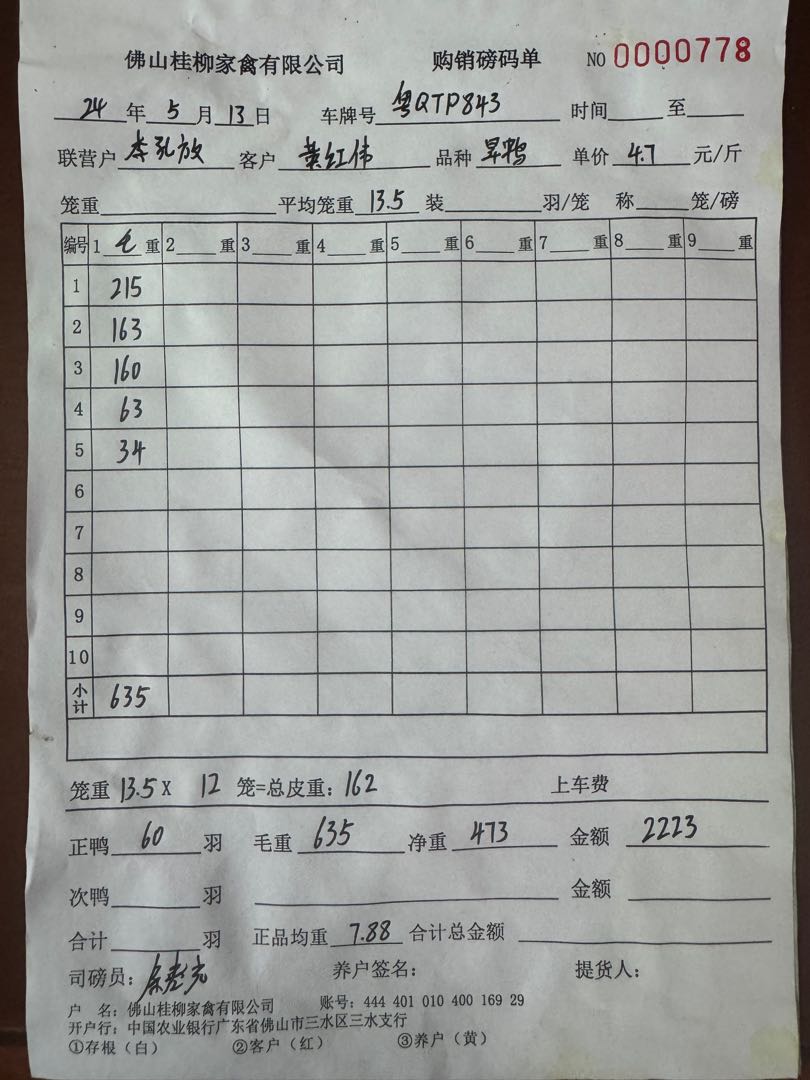 佛山桂柳家禽有限公司 购销磅码单 NO 0000778
24 年 5 月 13 日 车牌号 粤QTP843 时间 至
联营户 李孔放 客户 黄红伟 品种 旱鸭 单价 4.7 元/斤
笼重 平均笼重 13.5 装 羽/笼 称 笼/磅
编号 1 毛 重 2 重 3 重 4 重 5 重 6 重 7 重 8 重 9 重
1 215
2 163
3 160
4 63
5 34
6
7
8
9
10
小计 635
笼重 13.5 X 12 笼=总皮重: 162 上车费
正鸭 60 羽 毛重 635 净重 473 金额 2223
次鸭 羽 金额
合计 羽 正品均重 7.88 合计总金额
司磅员: 养户签名: 提货人:
户 名: 佛山桂柳家禽有限公司 账号: 444 401 010 400 169 29
开户行: 中国农业银行广东省佛山市三水区三水支行
①存根(白) ②客户(红) ③养户(黄)